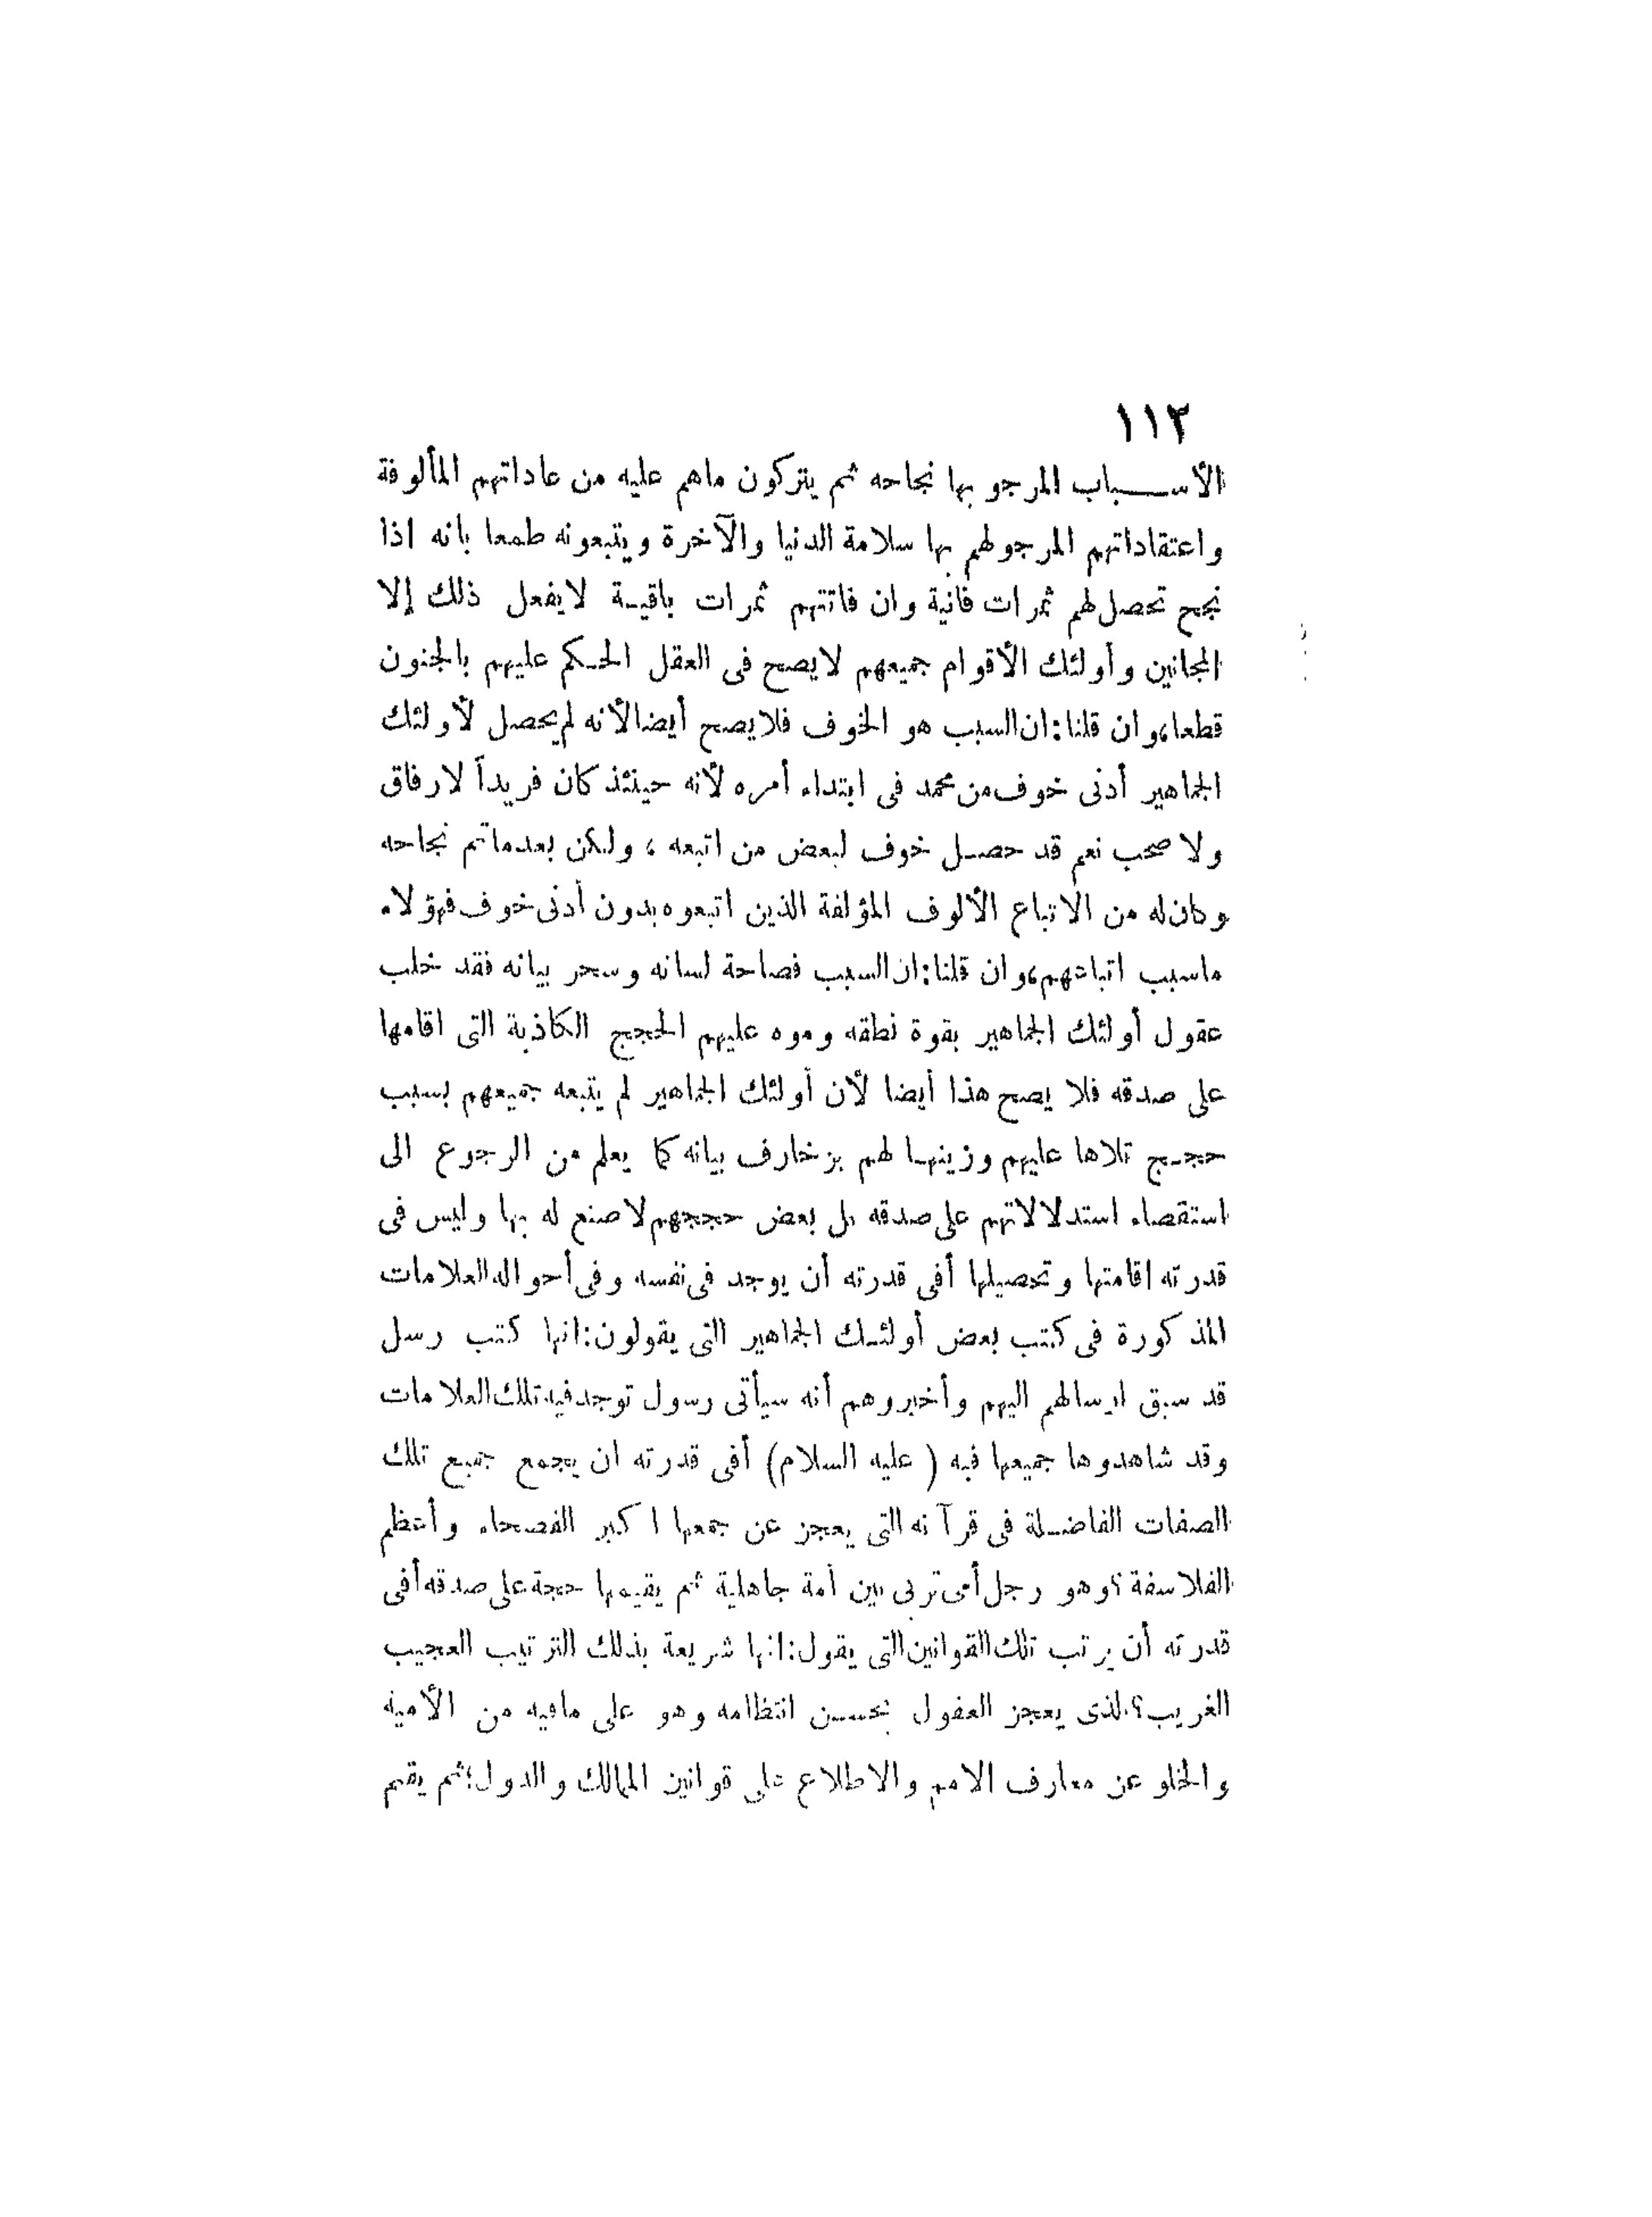 ١١٣
الأسباب المرجو بها نجاحه ثم يتركون ماهم عليه من عاداتهم المألوفة
واعتقاداتهم المرجولهم بها سلامة الدنيا والآخرة ويتبعونه طمعا بانه اذا
نجح تحصل لهم ثمرات فانية وان فاتتهم ثمرات باقية لايفعل ذلك إلا
المجانين وأولئك الأقوام جميعهم لايصح فى العقل الحكم عليهم بالجنون
قطعا، وان قلنا: ان السبب هو الخوف فلا يصح أيضا لأنه لم يحصل لأولئك
الجماهير أدنى خوف من محمد فى ابتداء أمره لأنه حينئذ كان فريداً لارفاق
ولا صحب نعم قد حصل خوف لبعض من اتبعه ، ولكن بعدما تم نجاحه
وكان له من الاتباع الألوف المؤلفة الذين اتبعوه بدون أدنى خوف فهؤلاء
ماسبب اتباعهم، وان قلنا: ان السبب فصاحة لسانه وسحر بيانه فقد خلب
عقول أولئك الجماهير بقوة نطقه وموه عليهم الحجج الكاذبة التى اقامها
على صدقه فلا يصح هذا أيضا لأن أولئك الجماهير لم يتبعه جميعهم بسبب
حجج تلاها عليهم وزينها لهم بزخارف بيانه كما يعلم من الرجوع الى
استقصاء استدلالاتهم على صدقه بل بعض حججهم لا صنع له بها وليس فى
قدرته اقامتها وتحصيلها أفى قدرته أن يوجد فى نفسه وفى أحواله العلامات
المذكورة فى كتب بعض أولئك الجماهير التى يقولون: انها كتب رسل
قد سبق ارسالهم اليهم وأخبروهم أنه سيأتى رسول توجد فيه تلك العلامات
وقد شاهدوها جميعها فيه ( عليه السلام) أفى قدرته ان يجمع جميع تلك
الصفات الفاضلة فى قرآنه التى يعجز عن جمعها اكبر الفصحاء وأعظم
الفلاسفة؟ وهو رجل أمى تربى بين أمة جاهلية ثم يقيمها حجة على صدقه أفى
قدرته أن يرتب تلك القوانين التى يقول: انها شريعة بذلك الترتيب العجيب
الغريب؟ الذى يعجز العقول بحسن انتظامه وهو على مافيه من الأمية
والخلو عن معارف الامم والاطلاع على قوانين الممالك والدول؛ ثم يقيم